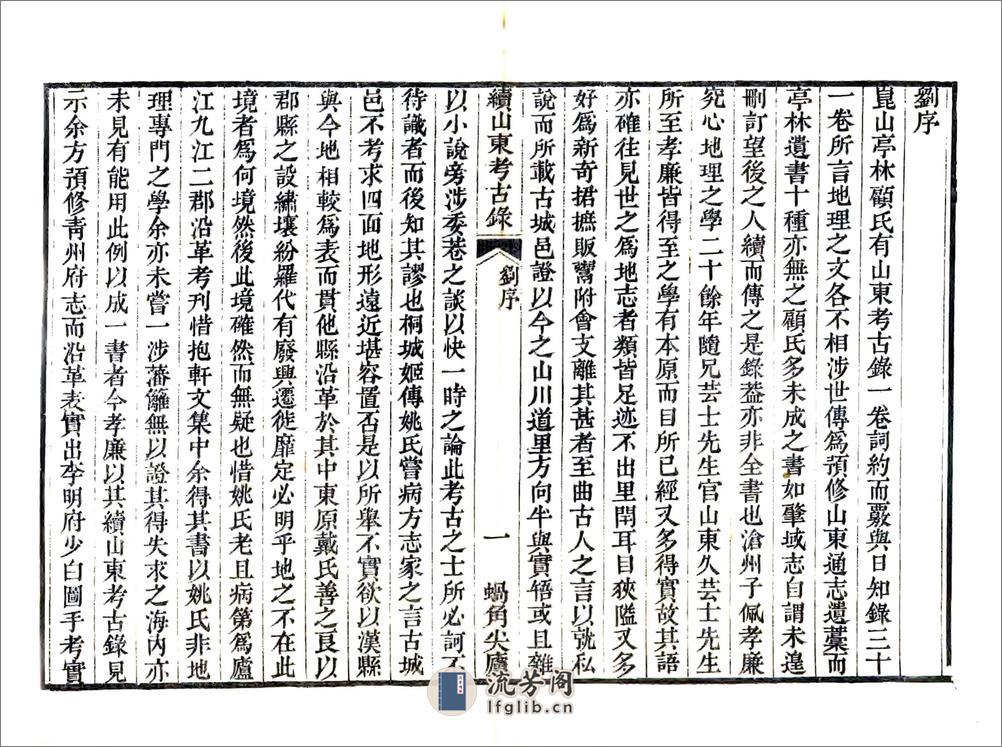 劉序
崑山亭林顧氏有山東考古錄一卷詞約而覈與日知錄三十
一卷所言地理之文各不相涉世傳爲預修山東通志遺藁而
亭林遺書十種亦無之顧氏多未成之書如肇域志自謂未遑
刪訂望後之人續而傳之是錄葢亦非全書也滄州子佩孝廉
究心地理之學二十餘年隨兄芸士先生官山東久芸士先生
所至孝廉皆得至之學有本原而目所已經又多得實故其語
亦確往見世之爲地志者類皆足迹不出里閈耳目狹隘又多
好爲新奇捃摭販鬻附會支離其甚者至曲古人之言以就私
說而所載古城邑證以今之山川道里方向半與實牾或且雜
續山東考古錄 劉序 一 蝸角尖廬
以小說旁涉委巷之談以快一時之論此考古之士所必訶不
待識者而後知其謬也桐城姬傳姚氏嘗病方志家之言古城
邑不考求四面地形遠近堪容置否是以所舉不實欲以漢縣
與今地相較爲表而貫他縣沿革於其中東原戴氏善之良以
郡縣之設繡壤紛羅代有廢興遷徙靡定必明乎地之不在此
境者爲何境然後此境確然而無疑也惜姚氏老且病第爲廬
江九江二郡沿革考刊惜抱軒文集中余得其書以姚氏非地
理專門之學余亦未嘗一涉藩籬無以證其得失求之海內亦
未見有能用此例以成一書者今孝廉以其續山東考古錄見
示余方預修靑州府志而沿革表實出李明府少白圖手考實
流芳阁
lfglib.cn